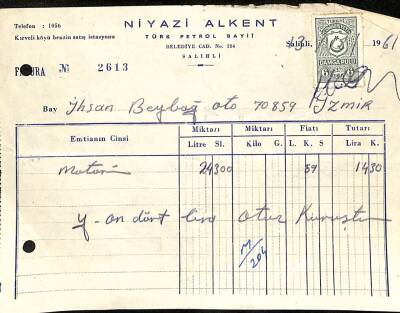 Telefon : 1056
Kırveli köyü benzin satış istasyonu
NİYAZİ ALKENT
TÜRK PETROL BAYİİ
BELEDİYE CAD. No. 204
SALİHLİ
Salihli, 13 1961
DAMGA PULU
FATURA № 2613
Bay İhsan Beybağ oto 70859 İzmir
Emtianın Cinsi Miktarı Miktarı Fiatı Tutarı
Litre Sl. Kilo G. L. K. S Lira K.
Motorin 24300 59 1430
Y- on dört lira otuz Kuruştur
M/204